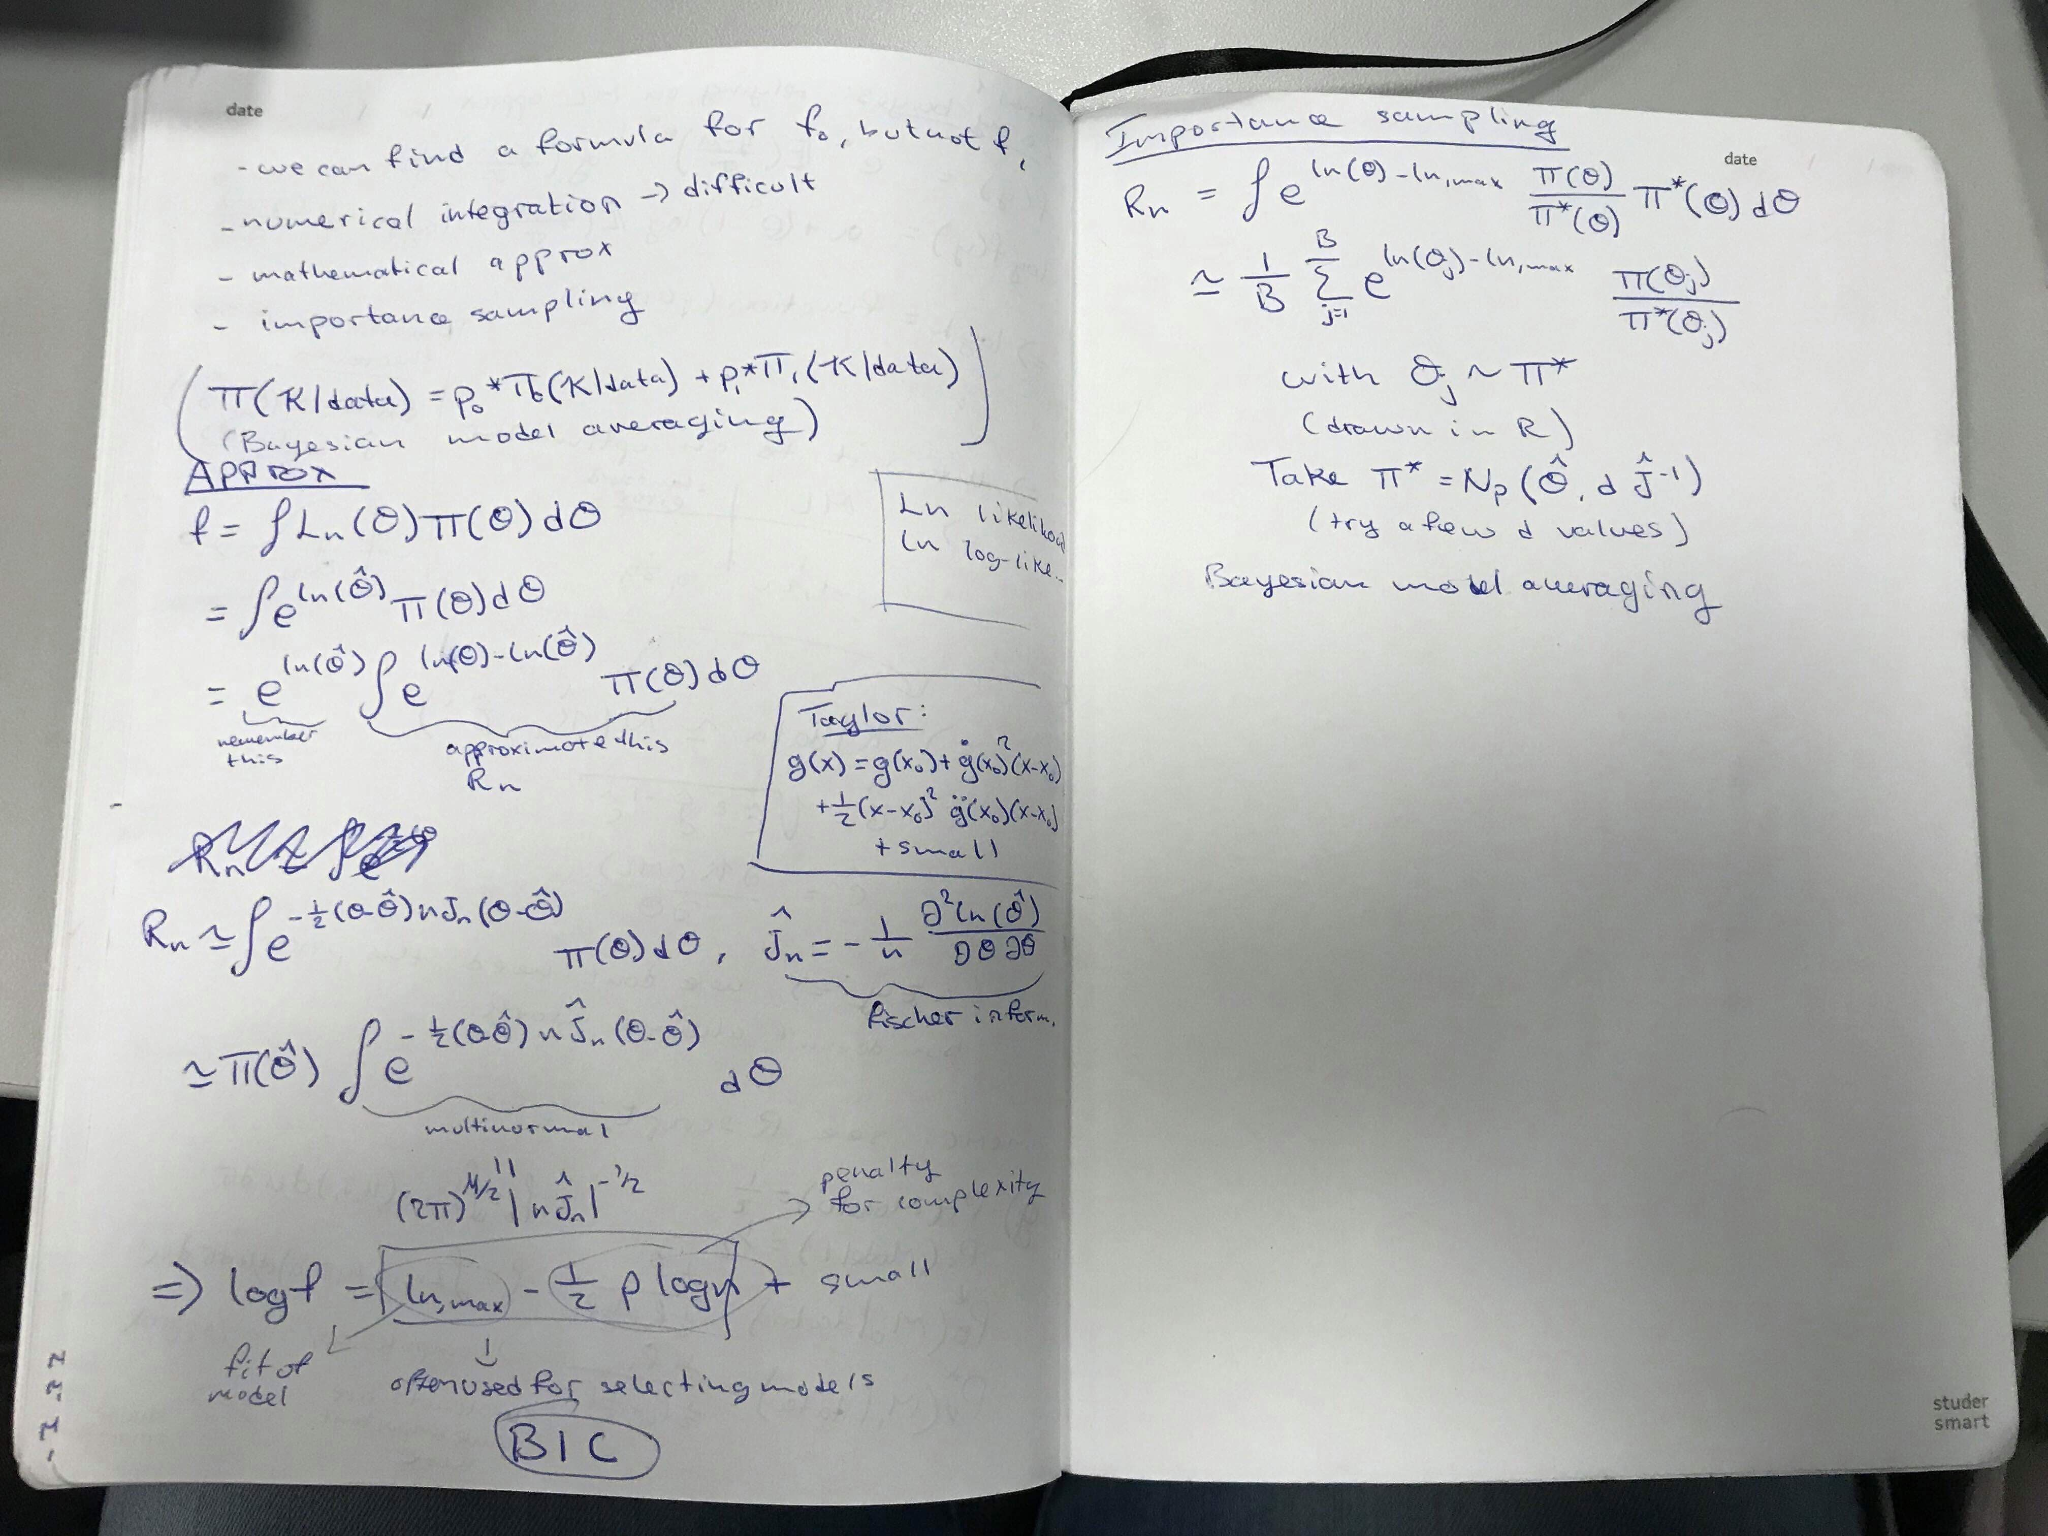 date
- we can find a formula for f₀, but not f₁
- numerical integration → difficult
- mathematical approx
- importance sampling
π(K|data) = p₀*π₀(K|data) + p₁*π₁(K|data)
(Bayesian model averaging)
Approx
f = ∫Ln(θ)π(θ)dθ
Ln likelihood
ln log-like...
= ∫e^ln(θ̂) π(θ)dθ
= e^ln(θ̂) ∫e^ln(θ)-ln(θ̂) π(θ)dθ
remember this
approximate this
Rn
Taylor:
g(x) = g(x₀) + ġ(x₀)²(x-x₀)
+ ½(x-x₀)² g̈(x₀)(x-x₀)
+ small
Rn ≃ ∫e^-½(θ-θ̂)nJn(θ-θ̂) π(θ)dθ, Ĵn = -1/n ∂²ln(θ̂)/∂θ∂θ
fischer inform.
≃ π(θ̂) ∫e^-½(θ-θ̂)nĴn(θ-θ̂) dθ
multinormal
(2π)^1/2 |nĴn|^-1/2
penalty
for complexity
⇒ log f = ln,max - ½ p log n + small
fit of
model
often used for selecting models
BIC
Importance sampling
date
Rn = ∫e^ln(θ)-ln,max π(θ)/π*(θ) π*(θ)dθ
≃ 1/B Σ_{j=1}^B e^ln(θj)-ln,max π(θj)/π*(θj)
with θj ~ π*
(drawn in R)
Take π* = Np(θ̂, d Ĵ⁻¹)
(try a few d values)
Bayesian model averaging
studer
smart